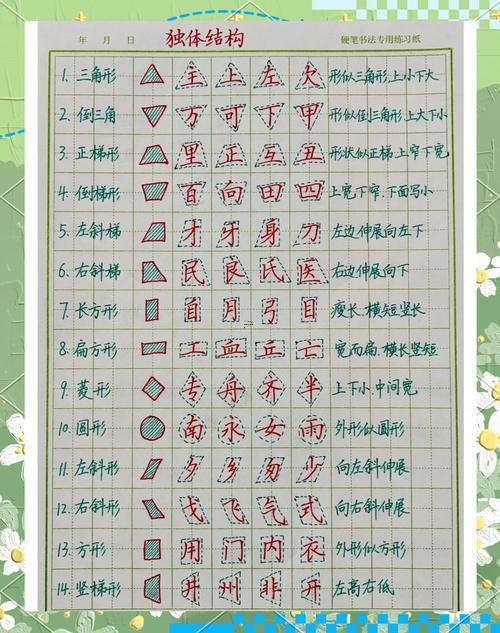 年 月 日 独体结构 硬笔书法专用练习纸
1. 三角形 主 上 左 欠 形似三角形,上小下大
2. 倒三角 万 可 下 甲 形似倒三角形,上大下小
3. 正梯形 里 正 互 丑 形状似正梯,上窄下宽
4. 倒梯形 百 向 田 四 上宽下窄、下面写小
5. 左斜梯 才 牙 身 刀 左边伸展向左下
6. 右斜梯 民 良 氏 医 右边伸展向下
7. 长方形 自 月 弓 目 瘦长、横短竖长
8. 扁方形 工 血 丘 亡 宽而扁、横长竖短
9. 菱形 专 舟 齐 半 上下小、中间宽
10. 圆形 南 永 女 雨 外形似圆形
11. 左斜形 夕 乡 勿 少 向左斜伸展
12. 右斜形 戈 飞 气 式 向右斜伸展
13. 方形 用 门 内 衣 外形似方形
14. 竖梯形 井 州 非 丹 左高右低